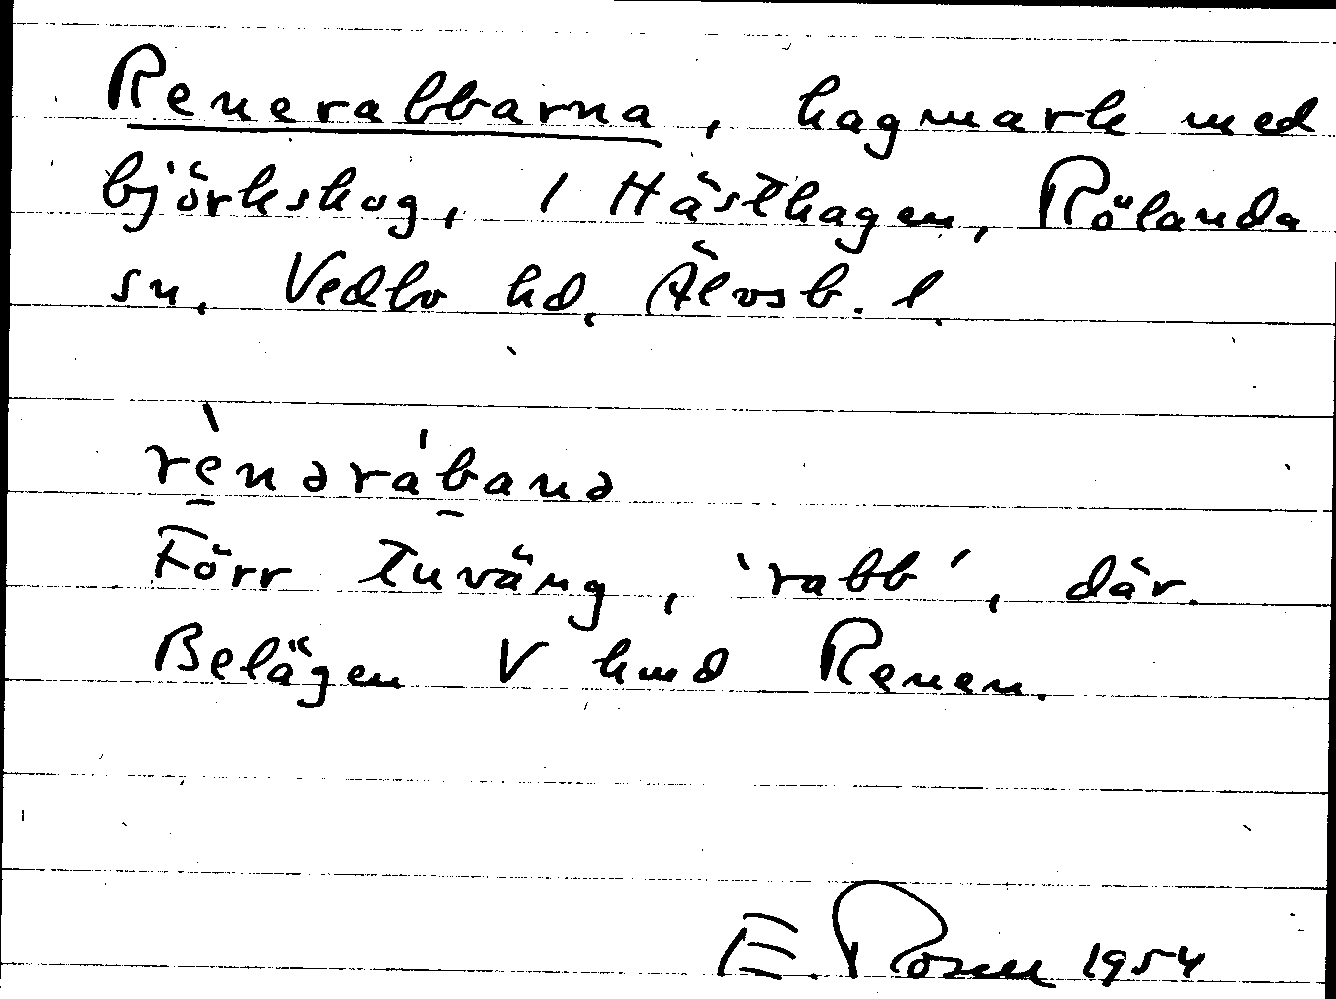 Renerabbarna, hagmark med
björkskog, 1 Hästhagen, Rölanda
sn, Vedbo hd, Älvsb. l.
rènəràbanə
Förr tuväng, 'rabb', där.
Belägen V hmd Renen.
E. Rosell 1954